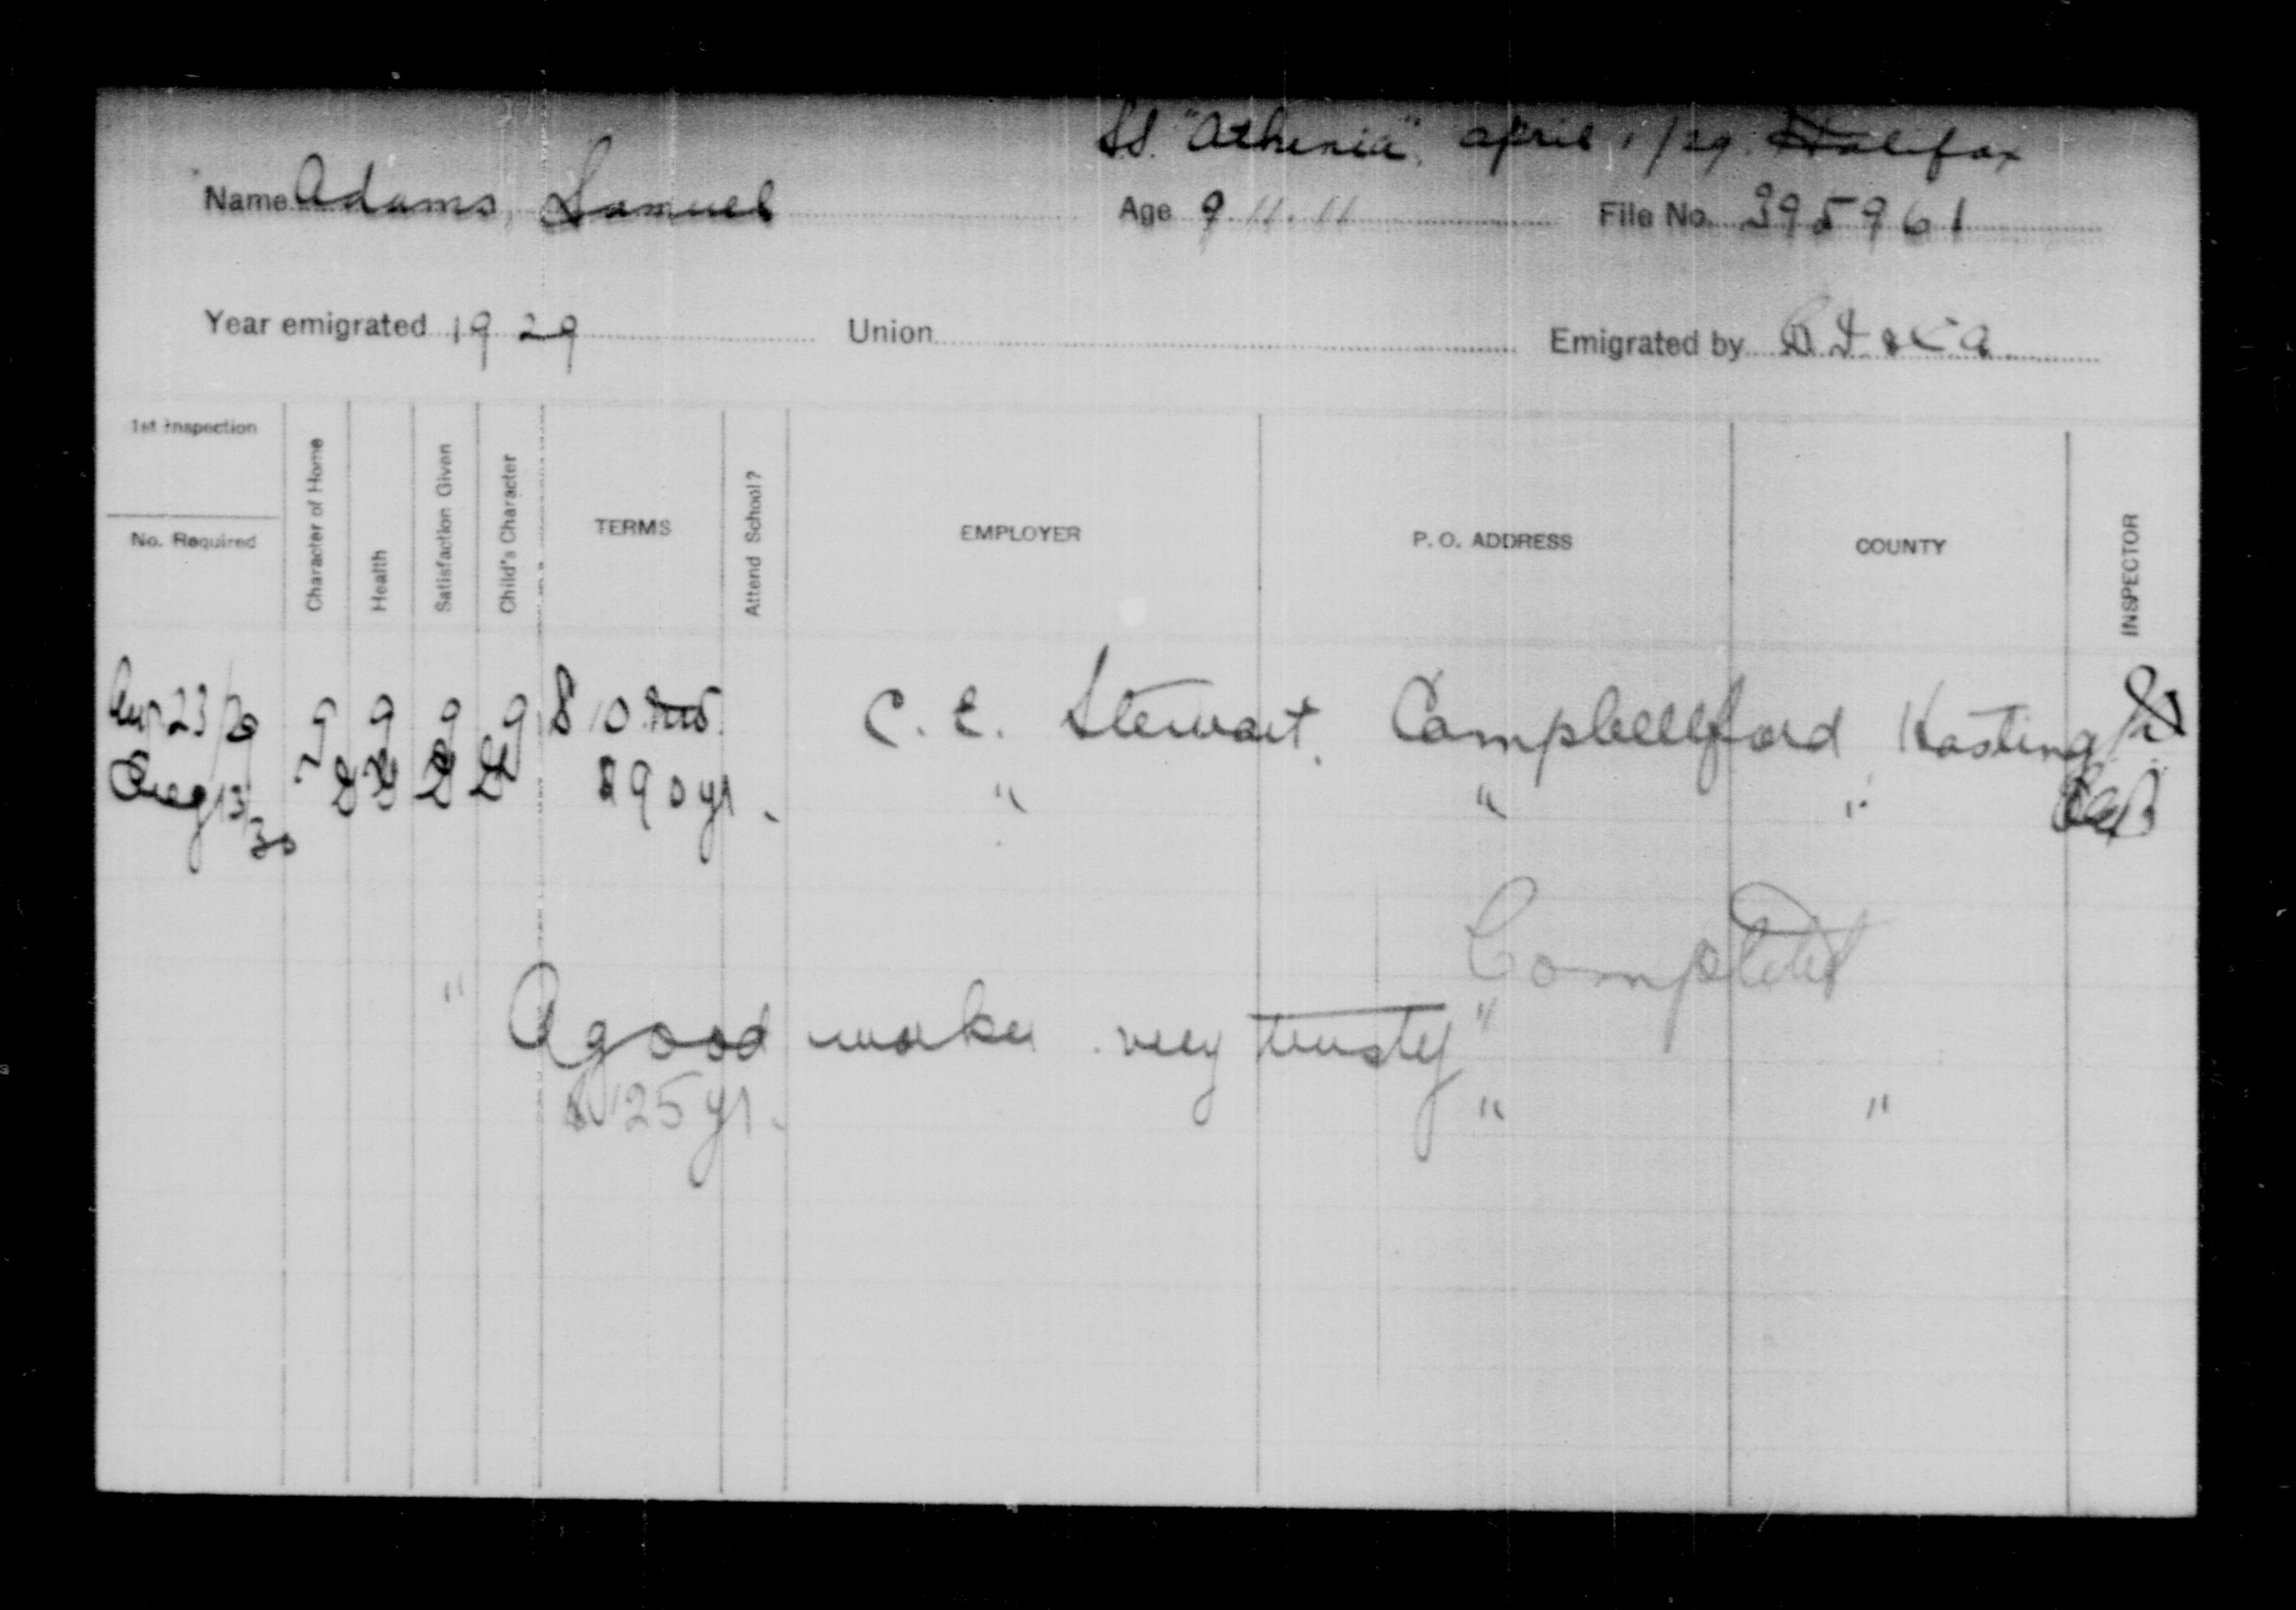 S.S. "Athenia" April 1/29. Halifax
Name Adams, Samuel Age 9.11.11 File No. 395961
Year emigrated 1929 Union Emigrated by
1st Inspection
No. Required
Character of Home
Health
Satisfaction Given
Child's Character
TERMS
Attend School?
EMPLOYER
P. O. ADDRESS
COUNTY
INSPECTOR
23/29 g g g g $ 10 C. E. Stewart. Campbellford Hasting
Aug 13/30 $ 90 yr. " " "
Completed
" A good worker very trusty "
$ 125 yr. " "